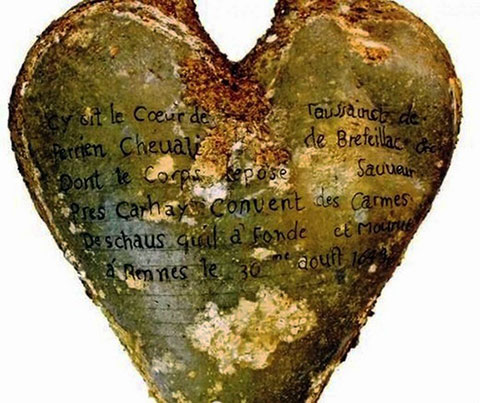 Cy Git le Cœur de Taussainct de
Perrien Chevali de Brefeillac
Dont le Corps repose Sauveur
Pres Carhay Convent des Carmes
Deschaus quil a fondé et Mourut
á Rennes le 30 me aoust 1649